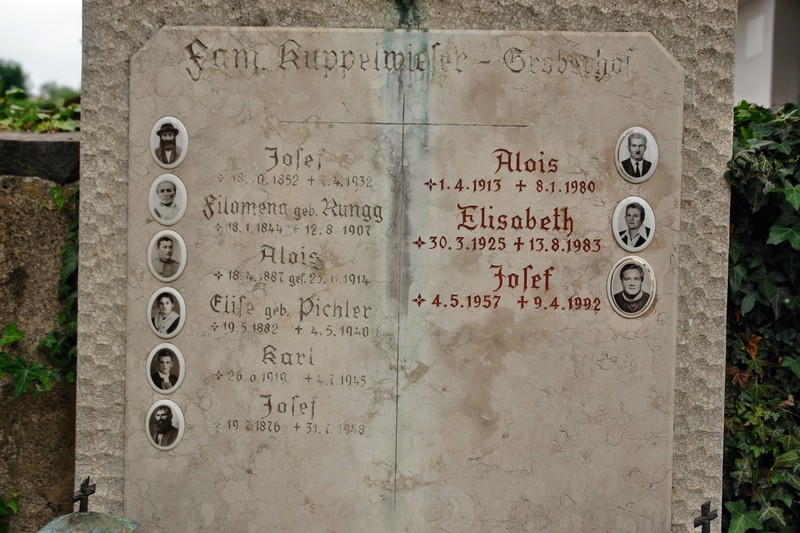 Fam. Kuppelwieser - Graberhof
Josef
✢ 18.10.1852 ✝ 7.4.1932
Filomena geb. Rungg
✢ 18.1.1844 ✝ 12.8.1907
Alois
✢ 18.4.1887 gef. 1914
Elise geb. Pichler
✢ 19.5.1882 ✝ 4.5.1940
Karl
✢ 26.6.1919 ✝ 4.7.1945
Josef
✢ 19.7.1876 ✝ 31.7.1948
Alois
✢ 1.4.1913 ✝ 8.1.1980
Elisabeth
✢ 30.3.1925 ✝ 13.8.1983
Josef
✢ 4.5.1957 ✝ 9.4.1992